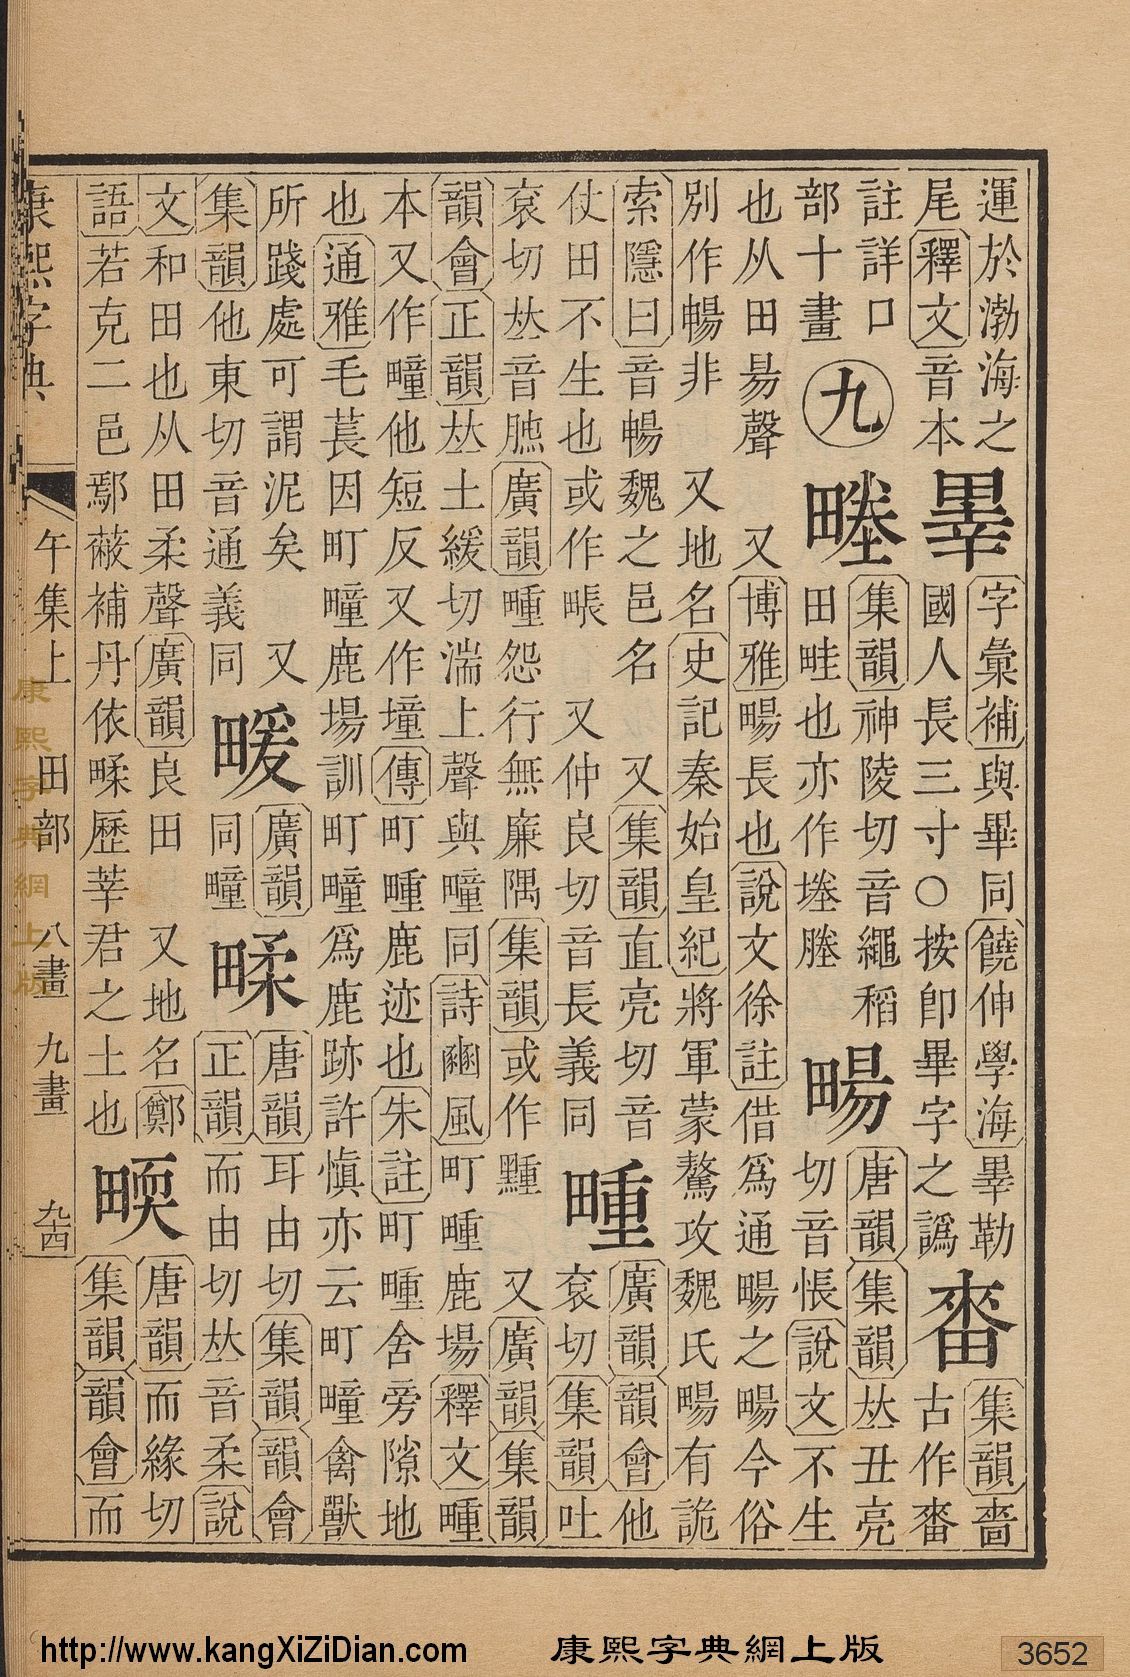 運於渤海之 𤲃 字彙補與畢同饒伸學海𤲃勒
尾釋文音本 國人長三寸○按卽畢字之譌 畨 集韻嗇
註詳口 集韻神陵切音繩稻 唐韻集韻𠀤丑亮 古作畨
部十畫 九 田畦也亦作塍䐽 切音悵說文不生
也从田昜聲 又博雅畼長也說文徐註借爲通畼之畼今俗
別作暢非 又地名史記秦始皇紀將軍蒙驁攻魏氏畼有詭
索隱曰音暢魏之邑名 又集韻直亮切音 畽 廣韻韻會他
仗田不生也或作㽴 又仲良切音長義同 袞切集韻吐
袞切𠀤音㬿廣韻畽怨行無廉隅集韻或作黗 又廣韻集韻
韻會正韻𠀤土緩切湍上聲與疃同詩豳風町畽鹿場釋文畽
本又作疃他短反又作墥傳町畽鹿迹也朱註町畽舍旁隙地
也通雅毛萇因町疃鹿場訓町疃爲鹿跡許愼亦云町疃禽獸
所踐處可謂泥矣 又 廣韻 唐韻耳由切集韻韻會
集韻他東切音通義同 畽 同疃 𤲬 正韻而由切𠀤音柔說
文和田也从田柔聲廣韻良田 又地名鄭 唐韻而緣切
語若克二邑鄢蔽補丹依𤲬歷莘君之土也 㽭 集韻韻會而
康熙字典 午集上 田部 八畫 九畫 九四
康熙字典網上版
http://www.kangXiZiDian.com 康熙字典網上版 3652